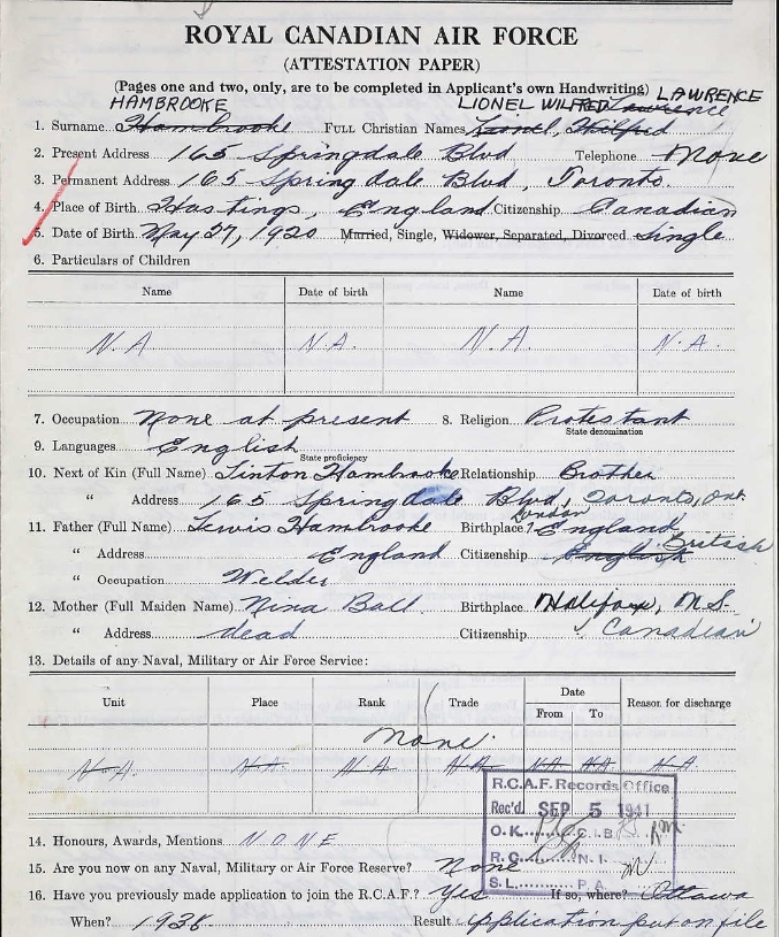 ROYAL CANADIAN AIR FORCE
(ATTESTATION PAPER)
(Pages one and two, only, are to be completed in Applicant's own Handwriting) LAWRENCE
HAMBROOKE LIONEL WILFRED Lawrence
1. Surname Hambrooke FULL Christian Names Lionel, Wilfred
2. Present Address 165 Springdale Blvd Telephone None
3. Permanent Address 165 Springdale Blvd, Toronto.
4. Place of Birth Hastings, England Citizenship Canadian
5. Date of Birth May 27, 1920 Married, Single, Widower, Separated, Divorced Single
6. Particulars of Children
Name Date of birth Name Date of birth
N.A. N.A. N.A. N.A.
7. Occupation None at present 8. Religion Protestant
State denomination
9. Languages English
State proficiency
10. Next of Kin (Full Name) Linton Hambrooke Relationship Brother
" Address 165 Springdale Blvd, Toronto, Ont.
London
11. Father (Full Name) Lewis Hambrooke Birthplace England
" Address England Citizenship English British
" Occupation Welder
12. Mother (Full Maiden Name) Nina Ball Birthplace Halifax, N.S.
" Address dead Citizenship Canadian
13. Details of any Naval, Military or Air Force Service:
Unit Place Rank Trade Date Reason for discharge
From To
None.
N.A. N.A. N.A. N.A. N.A. N.A. N.A.
R.C.A.F. Records Office
Rec'd. SEP 5 1941
O.K. C.I.B.
R.C. N.I.
S.L. P.A.
14. Honours, Awards, Mentions NONE
15. Are you now on any Naval, Military or Air Force Reserve? None
16. Have you previously made application to join the R.C.A.F.? Yes If so, where? Ottawa
When? 1938. Result Application put on file